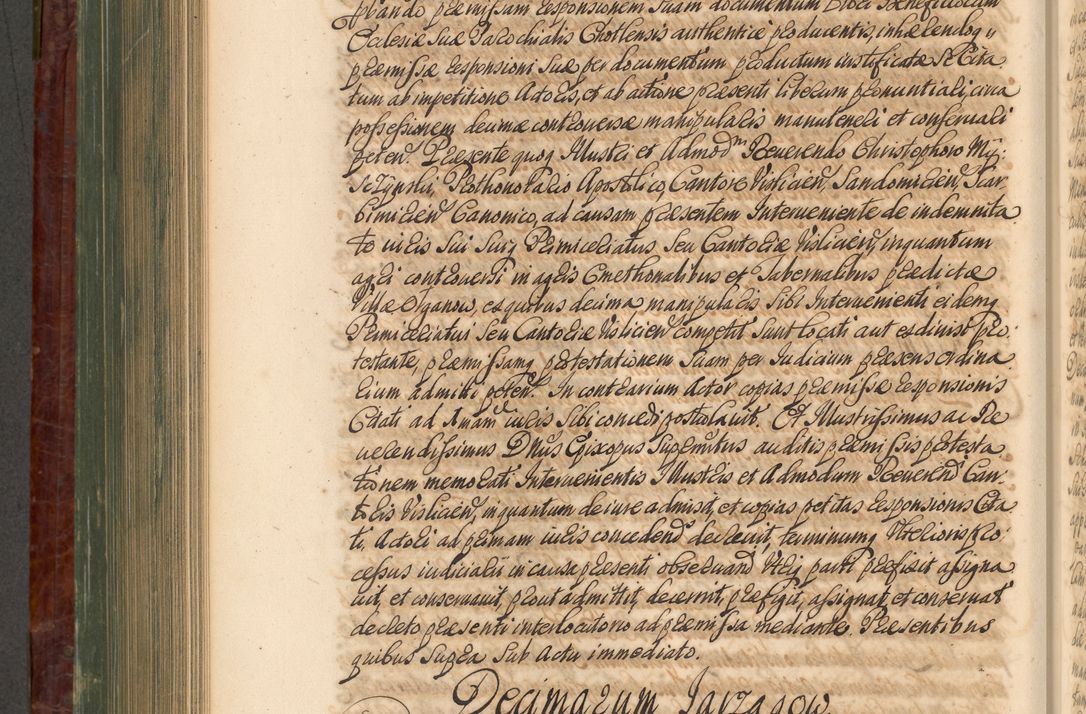 probando præmissam responsionem suam documentum Erectionis Beneficiorum
Ecclesiæ Suæ Parochialis Chotlensis authentice producentis, inhærendoq;
præmissæ responsioni suæ per documentum productum iustificatæ Se Cita
tum ab impetitione Actoris, et ab actione præsenti liberum pronuntiari, circa
possessionem decimæ controversæ manipularis manuteneri et conservari
peten. Præsente quoq Illustri et Admodm Reverendo Christophoro My:
szynski, Prothonotario Apostolico Cantore Vislicien, Sandomirien, Scar-
bimirien Canonico, ad causam præsentem Interveniente de indemnita
te iuris Sui Suiq Primiceriatus Seu Cantoriæ Vislicien, inquantum
agri controversi in agris Cmethonalibus et Tabernalibus prædictæ
Villæ Organow, ex quibus decima manipularis Sibi Intervenienti eidemq
Primiceriatui Seu Cantoriæ Vislicien competit Sunt locati aut exdivisi pro-
testante, præmissamq protestationem Suam per Iudicium præsens ordina
rium admitti peten. In contrarium Actor copias præmissæ responsionis
Citati ad primam iuris Sibi concedi postulavit. Et Illustrissimus ac Re
verendissimus Dnus Episcopus Supremitus auditis præmissis protesta
tionem memorati Intervenientis Illustris et Admodum Reverend Can-
toris Vislicien, inquantum de iure admisit, et copias petitas responsionis Cita
ti, Actori ad primam iuris concedend decrevit, terminumq Ulterioris pro
cessus iudiciarii in causa præsenti observand Utriq parti præfixit assigna
vit, et conservavit, prout admittit, decernit, præfigit, assignat, et conservat
decreto præsenti interlocutorio ad præmissa mediante. Præsentibus
quibus Supra Sub Actu immediato.
Decimarum Jarzagow